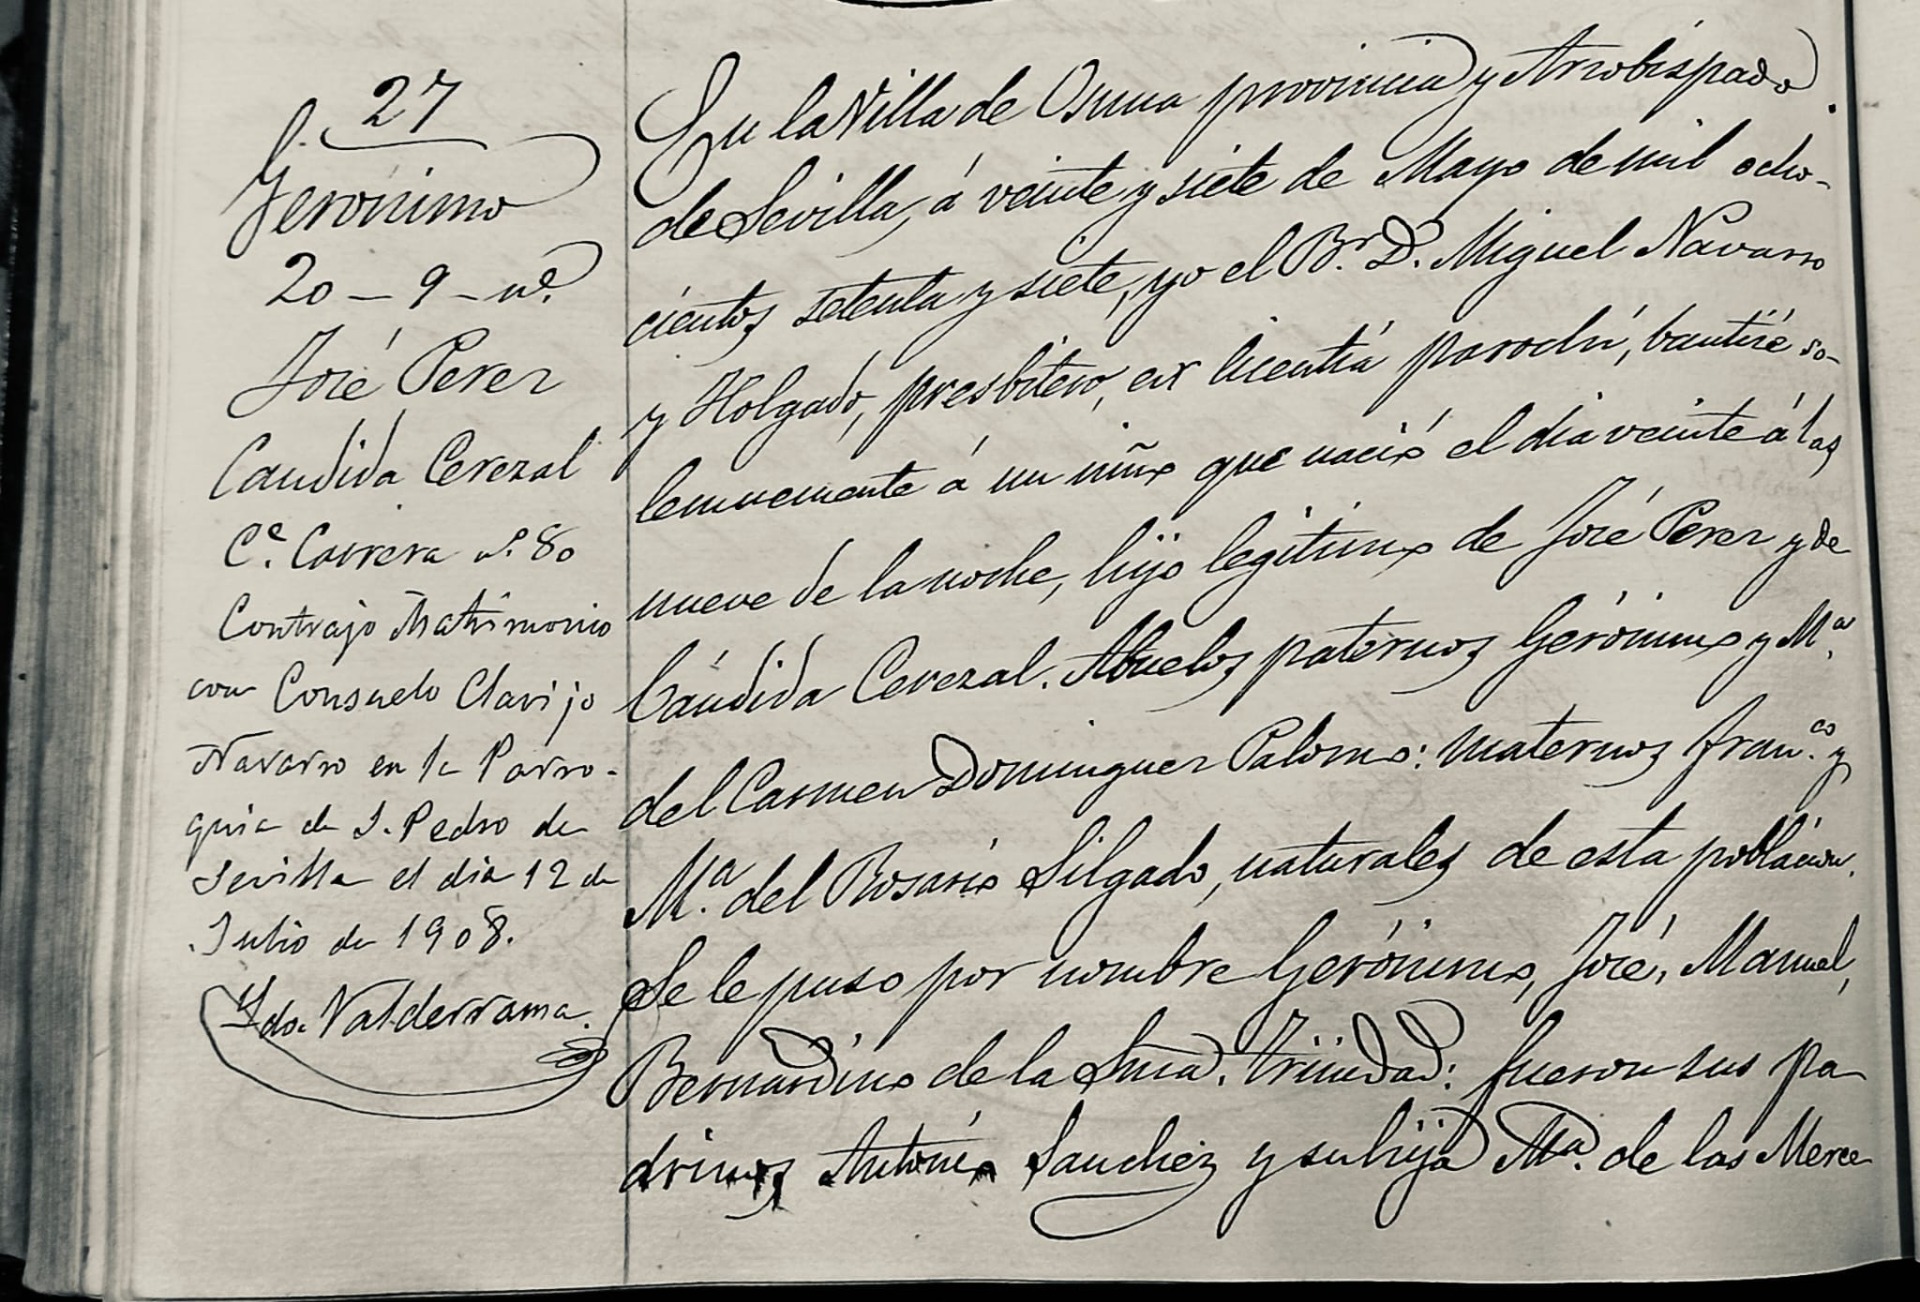 27
Gerónimo
20 - 9 - nē.
José Perez
Candida Cerezal
Cē. Carrera nº. 80
Contrajo Matrimonio
con Consuelo Clavijo
Navarro en la Parro-
quia de S. Pedro de
Sevilla el dia 12 de
Julio de 1908.
Fdo. Valderrama.
En la Villa de Osuna provincia y Arzobispado
de Sevilla, á veinte y siete de Mayo de mil ocho-
cientos setenta y siete, yo el Br. D. Miguel Navarro
y Holgado, presbitero, ex licentiá parochi, bauticé so-
lemnemente á un niño que nació el dia veinte á las
nueve de la noche, hijo legitimo de José Perez y de
Cándida Cerezal. Abuelos paternos Gerónimo y Mª.
del Carmen Dominguez Palomo: maternos Franco. y
Mª. del Rosario Silgado, naturales de esta poblacion.
Se le puso por nombre Gerónimo, José, Manuel,
Bernardino de la Sma. Trinidad: fueron sus pa
drinos Antonio Sanchez y su hija Mª. de las Merce